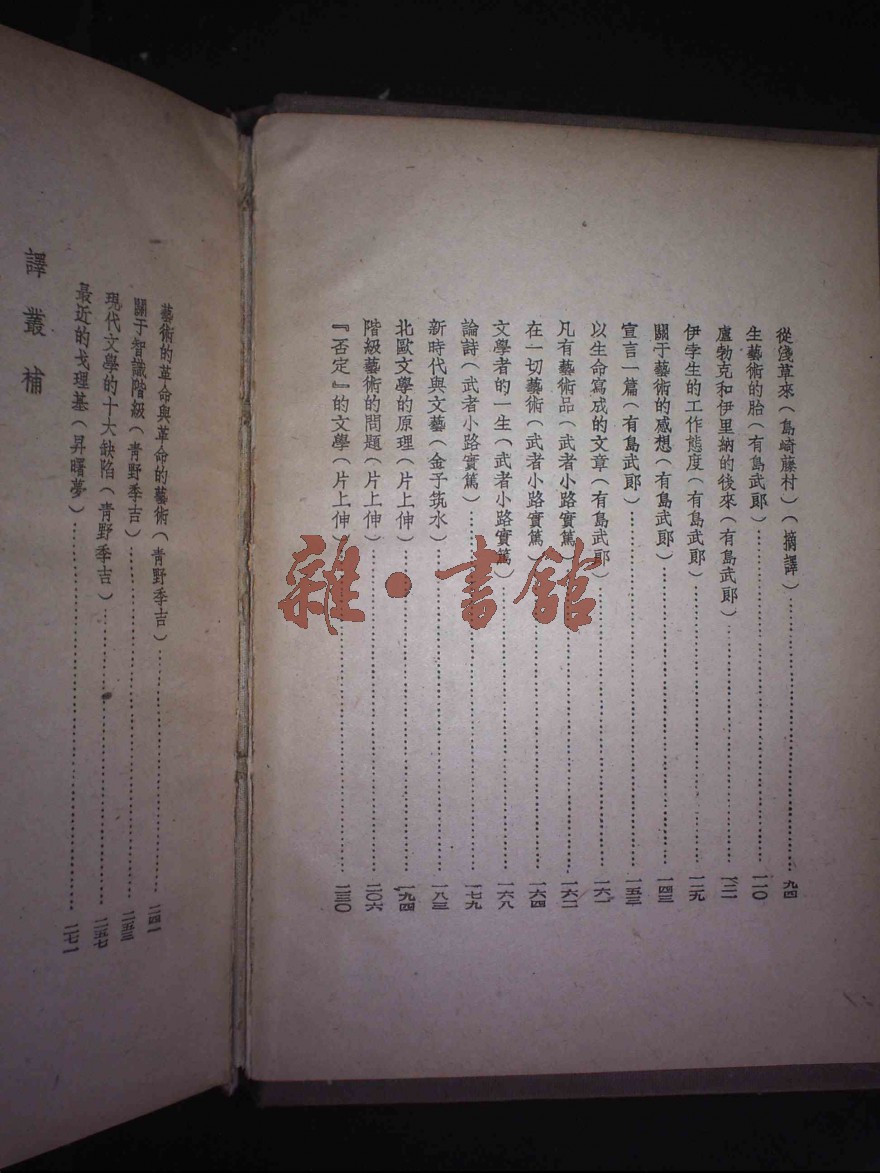 從淺草來(島崎藤村)(摘譯)……九四
生藝術的胎(有島武郞)……一一〇
盧勃克和伊里納的後來(有島武郞)……一二一
伊孛生的工作態度(有島武郞)……一二九
關于藝術的感想(有島武郞)……一四三
宣言一篇(有島武郞)……一五三
以生命寫成的文章(有島武郞)……一六一
凡有藝術品(武者小路實篤)……一六二
在一切藝術(武者小路實篤)……一六四
文學者的一生(武者小路實篤)……一六八
論詩(武者小路實篤)……一七九
新時代與文藝(金子筑水)……一八三
北歐文學的原理(片上伸)……一九四
階級藝術的問題(片上伸)……二〇六
『否定』的文學(片上伸)……二三〇
藝術的革命與革命的藝術(靑野季吉)……二四一
關于智識階級(靑野季吉)……二五三
現代文學的十大缺陷(靑野季吉)……二五七
最近的戈理基(昇曙夢)……二七一
譯叢補
雜·書館